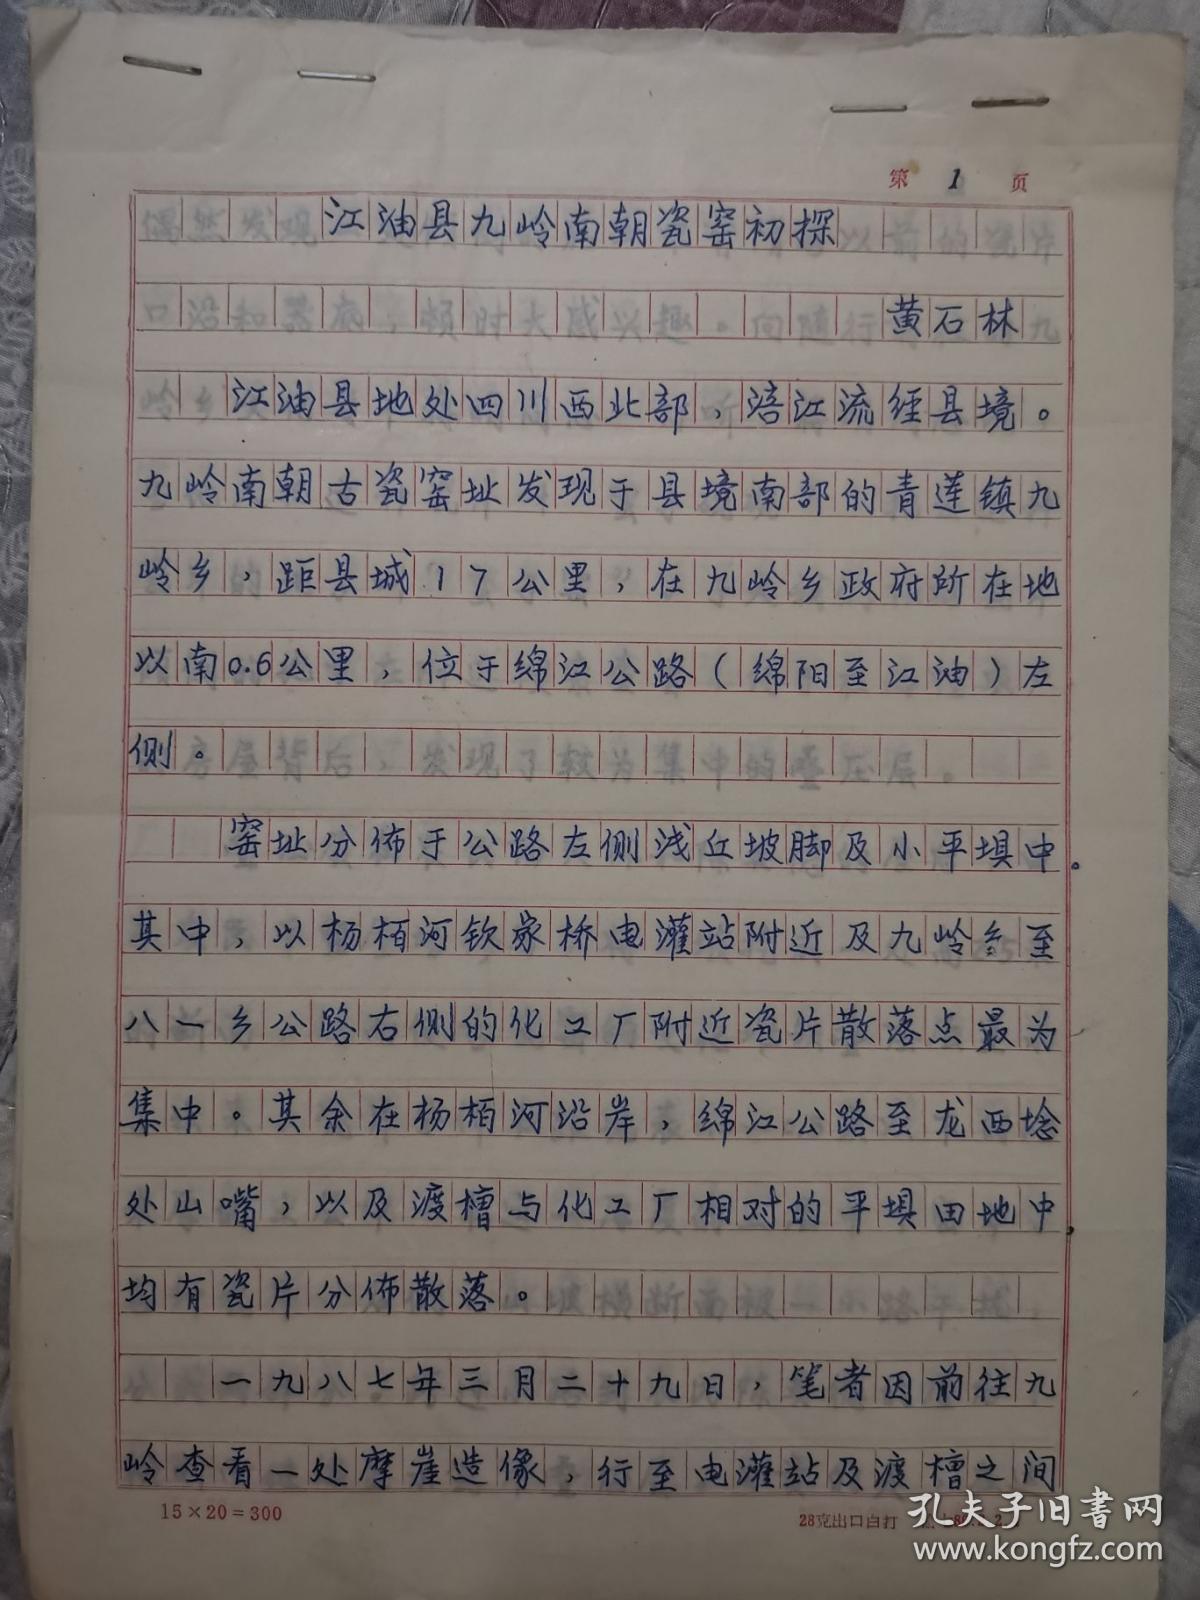 第 1 页
江油县九岭南朝瓷窑初探
黄石林
江油县地处四川西北部，涪江流经县境。
九岭南朝古瓷窑址发现于县境南部的青莲镇九
岭乡，距县城17公里，在九岭乡政府所在地
以南0.6公里，位于绵江公路（绵阳至江油）左
侧。
窑址分佈于公路左侧浅丘坡脚及小平坝中。
其中，以杨栢河钦家桥电灌站附近及九岭乡至
八一乡公路右侧的化工厂附近瓷片散落点最为
集中。其余在杨栢河沿岸，绵江公路至龙西埝
处山嘴，以及渡槽与化工厂相对的平坝田地中，
均有瓷片分佈散落。
一九八七年三月二十九日，笔者因前往九
岭查看一处摩崖造像，行至电灌站及渡槽之间
15×20=300
28克出口白打
孔夫子旧书网
www.kongfz.com